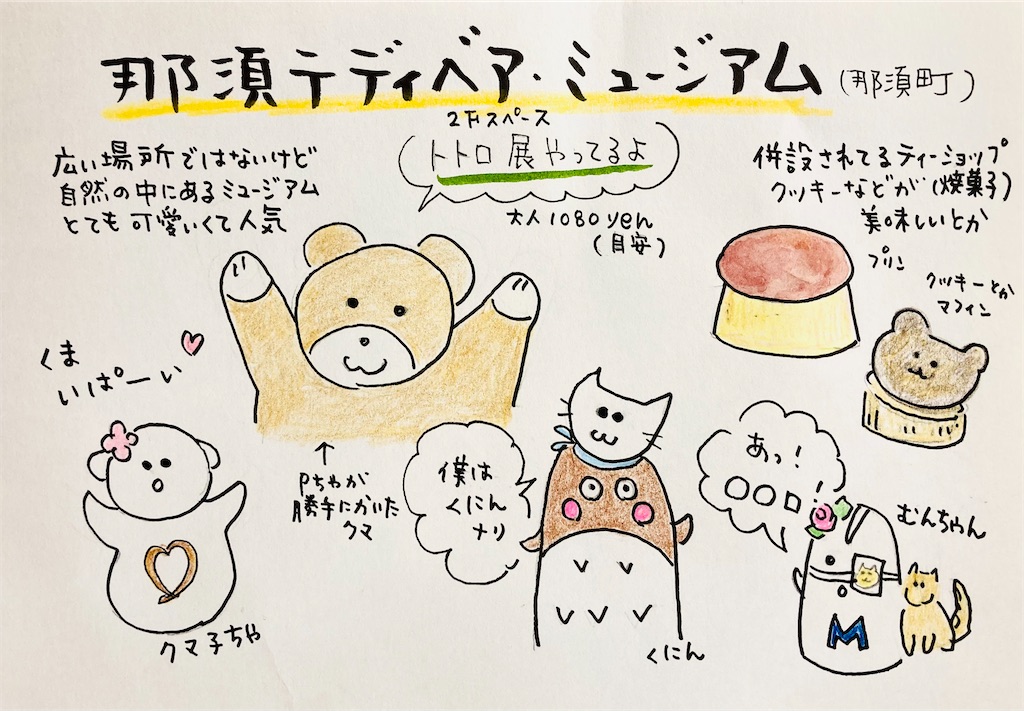 那須テディベア・ミュージアム (那須町)
広い場所ではないけど
自然の中にあるミュージアム
とても可愛いくて人気
2Fスペース
トトロ展やってるよ
大人1080yen
(目安)
併設されてるティーショップ
クッキーなどが(焼菓子)
美味しいとか
プリン
クッキーとか
マフィン
くま
いぱーい
↑
Pちゃが
勝手にかいた
クマ
僕は
くにん
ナリ
あっ!
○○□!
むんちゃん
M
クマ子ちゃ
くにん